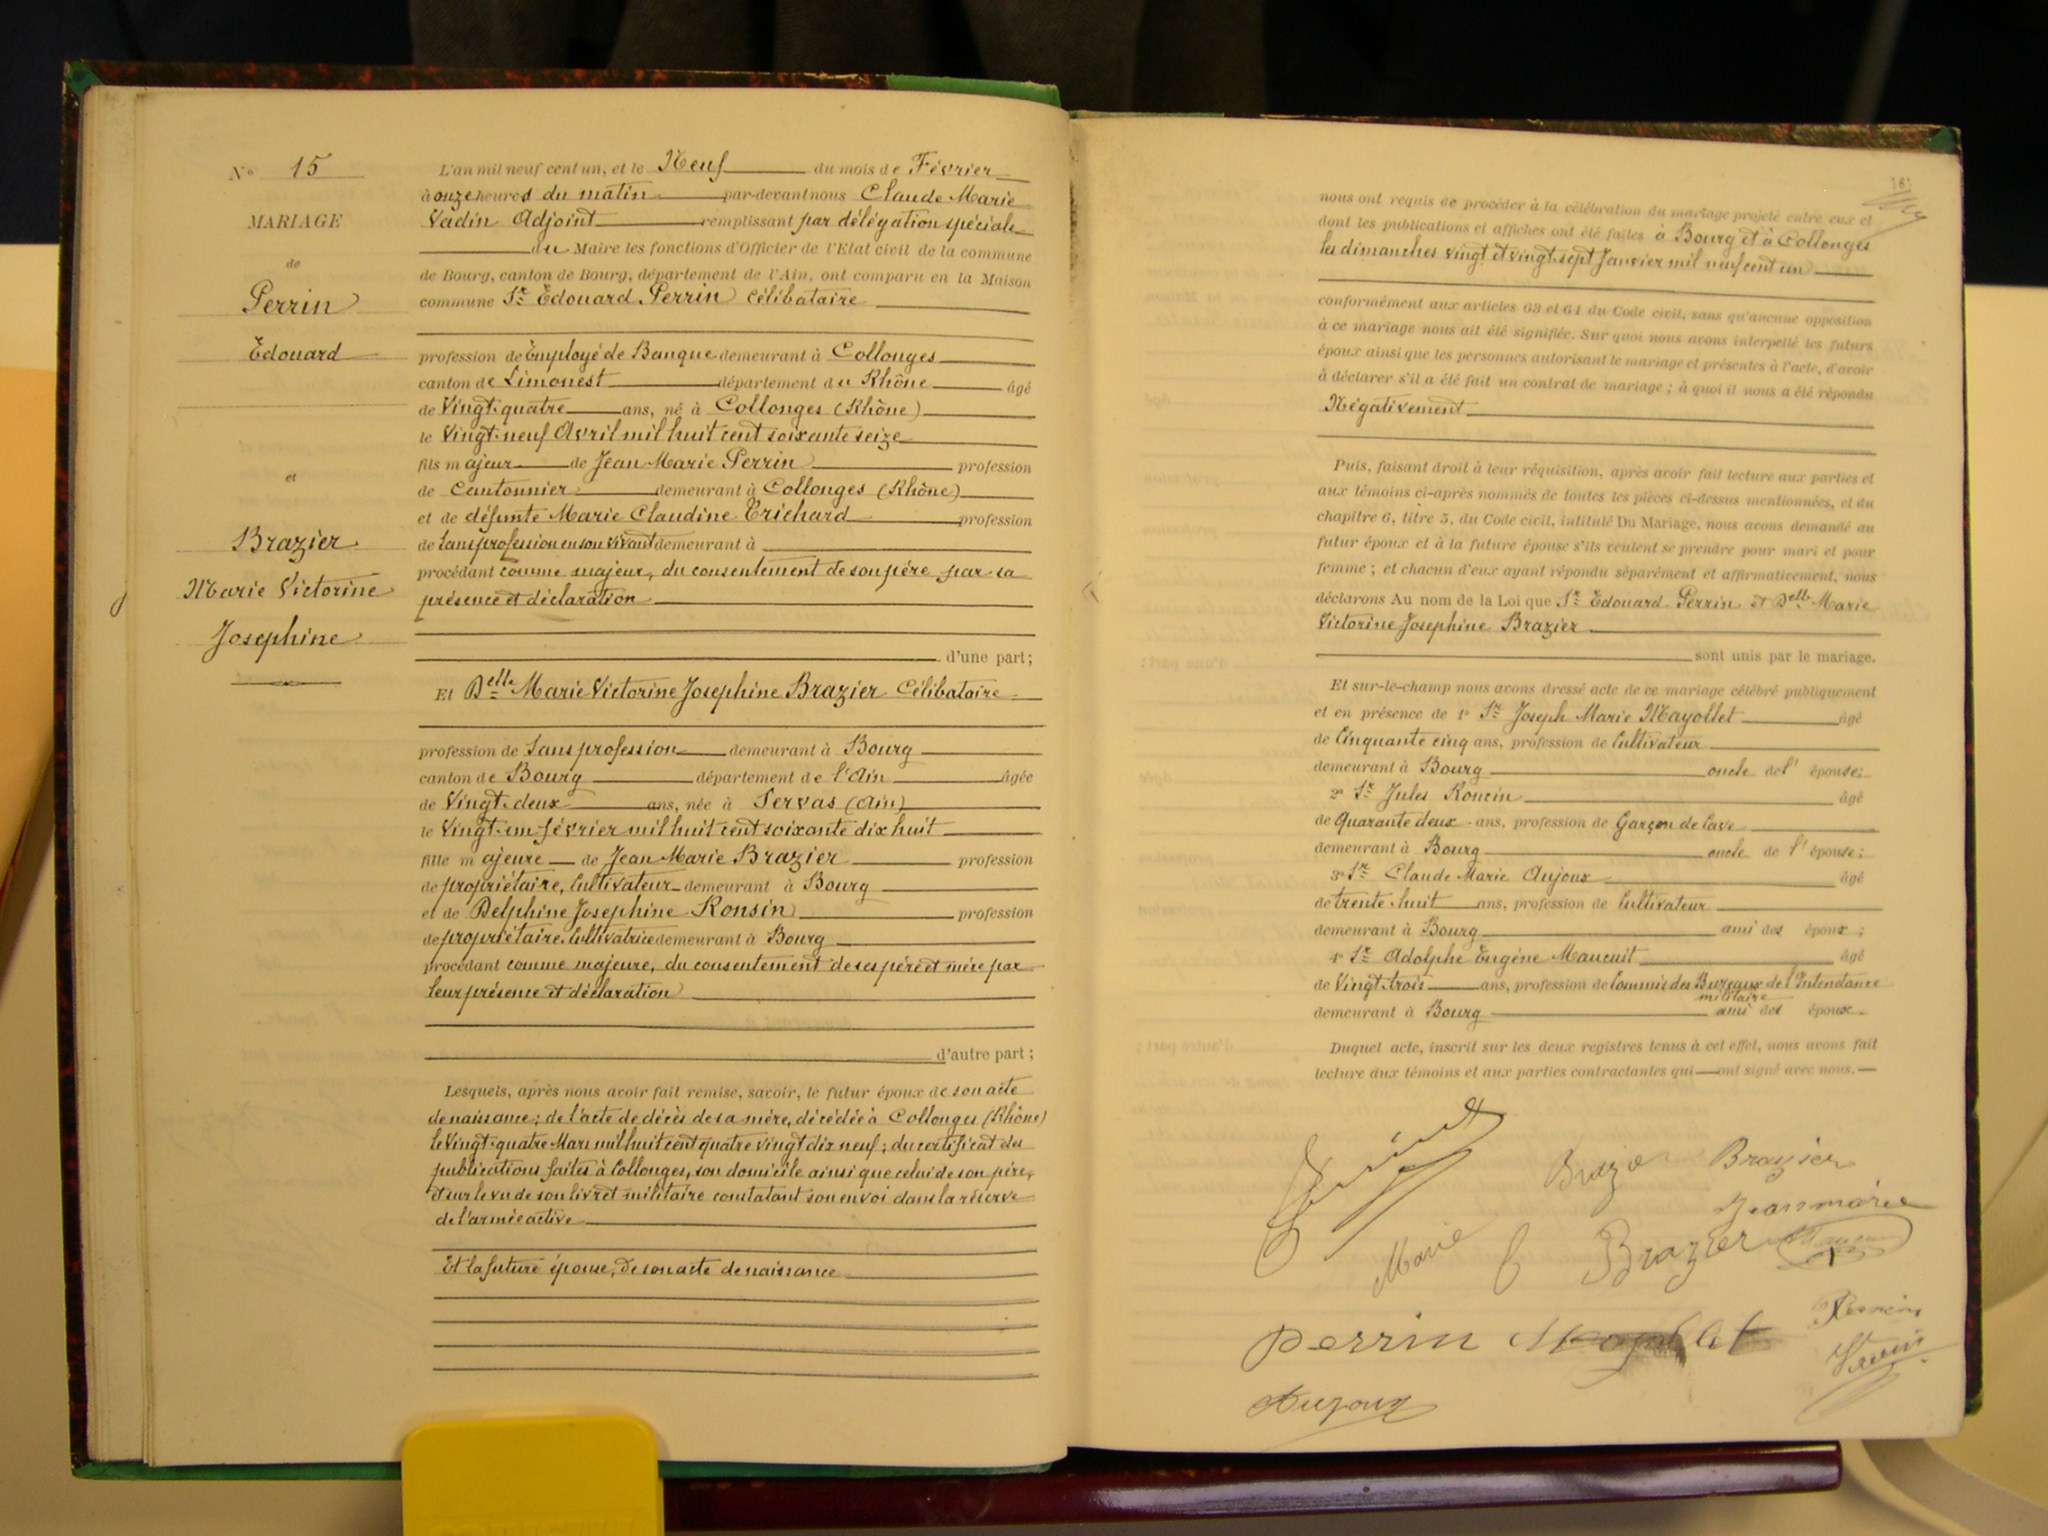 N° 15
MARIAGE
de
Perrin
Edouard
et
Brazier
Marie Victorine
Josephine
L'an mil neuf cent un, et le Neuf du mois de Février
à onze heures du matin par-devant nous Claude Marie
Vadin Adjoint remplissant par délégation spéciale
du Maire les fonctions d'Officier de l'Etat civil de la commune
de Bourg, canton de Bourg, département de l'Ain, ont comparu en la Maison
commune Sr Edouard Perrin Célibataire
profession de Employé de Banque demeurant à Collonges
canton de Limonest département du Rhône âgé
de Vingt-quatre ans, né à Collonges (Rhône)
le Vingt-neuf Avril mil huit cent soixante seize
fils majeur de Jean Marie Perrin profession
de Cantonnier demeurant à Collonges (Rhône)
et de défunte Marie Claudine Trichard profession
de Sans profession en son vivant demeurant à
procédant comme majeur, du consentement de son père par sa
présence et déclaration
d'une part;
Et Delle Marie Victorine Josephine Brazier Célibataire
profession de Sans profession demeurant à Bourg
canton de Bourg département de l'Ain âgée
de Vingt-deux ans, née à Servas (Ain)
le Vingt-un février mil huit cent soixante dix huit
fille majeure de Jean Marie Brazier profession
de propriétaire, Cultivateur demeurant à Bourg
et de Delphine Josephine Ronsin profession
de propriétaire, Cultivatrice demeurant à Bourg
procédant comme majeure, du consentement de ses père et mère par
leur présence et déclaration
d'autre part;
Lesquels, après nous avoir fait remise, savoir, le futur époux de son acte
de naissance; de l'acte de décès de sa mère, décédée à Collonges (Rhône)
le Vingt-quatre Mars mil huit cent quatre vingt dix neuf; du certificat des
publications faites à Collonges, son domicile ainsi que celui de son père,
et sur le vu de son livret militaire constatant son envoi dans la réserve
de l'armée active
Et la future épouse, de son acte de naissance
nous ont requis de procéder à la célébration du mariage projeté entre eux et
dont les publications et affiches ont été faites à Bourg et à Collonges
les dimanches vingt et vingt-sept Janvier mil neuf cent un
conformément aux articles 63 et 64 du Code civil, sans qu'aucune opposition
à ce mariage nous ait été signifiée. Sur quoi nous avons interpellé les futurs
époux ainsi que les personnes autorisant le mariage et présentes à l'acte, d'avoir
à déclarer s'il a été fait un contrat de mariage; à quoi il nous a été répondu
Négativement
Puis, faisant droit à leur réquisition, après avoir fait lecture aux parties et
aux témoins ci-après nommés de toutes les pièces ci-dessus mentionnées, et du
chapitre 6, titre 5, du Code civil, intitulé Du Mariage, nous avons demandé au
futur époux et à la future épouse s'ils veulent se prendre pour mari et pour
femme; et chacun d'eux ayant répondu séparément et affirmativement, nous
déclarons Au nom de la Loi que Sr Edouard Perrin et Delle Marie
Victorine Josephine Brazier
sont unis par le mariage.
Et sur-le-champ nous avons dressé acte de ce mariage célébré publiquement
et en présence de 1° Sr Joseph Marie Mayollet âgé
de Cinquante cinq ans, profession de Cultivateur
demeurant à Bourg oncle de l'épouse;
2° Sr Jules Roncin âgé
de Quarante deux ans, profession de Garçon de Cave
demeurant à Bourg oncle de l'épouse;
3° Sr Claude Marie Aujoux âgé
de trente-huit ans, profession de Cultivateur
demeurant à Bourg ami des époux;
4° Sr Adolphe Eugène Maucuit âgé
de Vingt-trois ans, profession de Commis des Bureaux de l'Intendance
militaire
demeurant à Bourg ami des époux.
Duquel acte, inscrit sur les deux registres tenus à cet effet, nous avons fait
lecture aux témoins et aux parties contractantes qui ont signé avec nous.
Brazier
Jean marie
Marie Brazier
Perrin
Aujoux